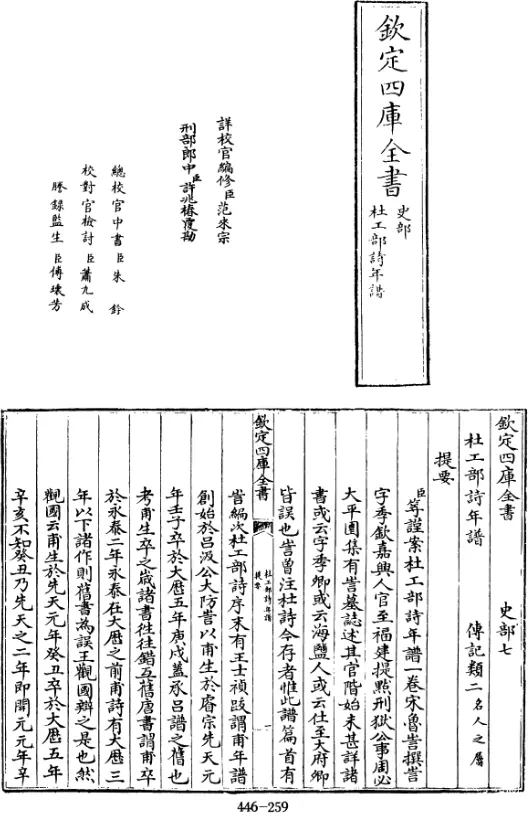 欽定四庫全書
史部
杜工部詩年譜
詳校官編修臣范來宗
刑部郎中臣許兆椿覆勘
總校官中書臣朱鈐
校對官檢討臣蕭九成
謄錄監生臣傅壊芳
欽定四庫全書 史部七
杜工部詩年譜 傳記類二名人之屬
提要
臣等謹案杜工部詩年譜一卷宋魯訔撰訔
字季欽嘉興人官至福建提㸃刑獄公事周必
大平園集有訔墓誌述其官階始末甚詳諸
書或云字季卿或云海鹽人或云仕至太府卿
皆誤也訔曽注杜詩今存者惟此譜篇首有
欽定四庫全書 杜工部詩年譜 提要 一
訔編次杜工部詩序末有王士禎跋謂甫年譜
創始於吕汲公大防訔以甫生於睿宗先天元
年壬子卒於大厯五年庚戌蓋承吕譜之舊也
考甫生卒之嵗諸書徃徃錯互舊唐書謂甫卒
於永泰二年永泰在大厯之前甫詩有大厯三
年以下諸作則舊書為誤王觀國辨之是也然
觀國云甫生於先天元年癸丑卒於大厯五年
辛亥不知癸丑乃先天之二年即開元元年辛
446-259